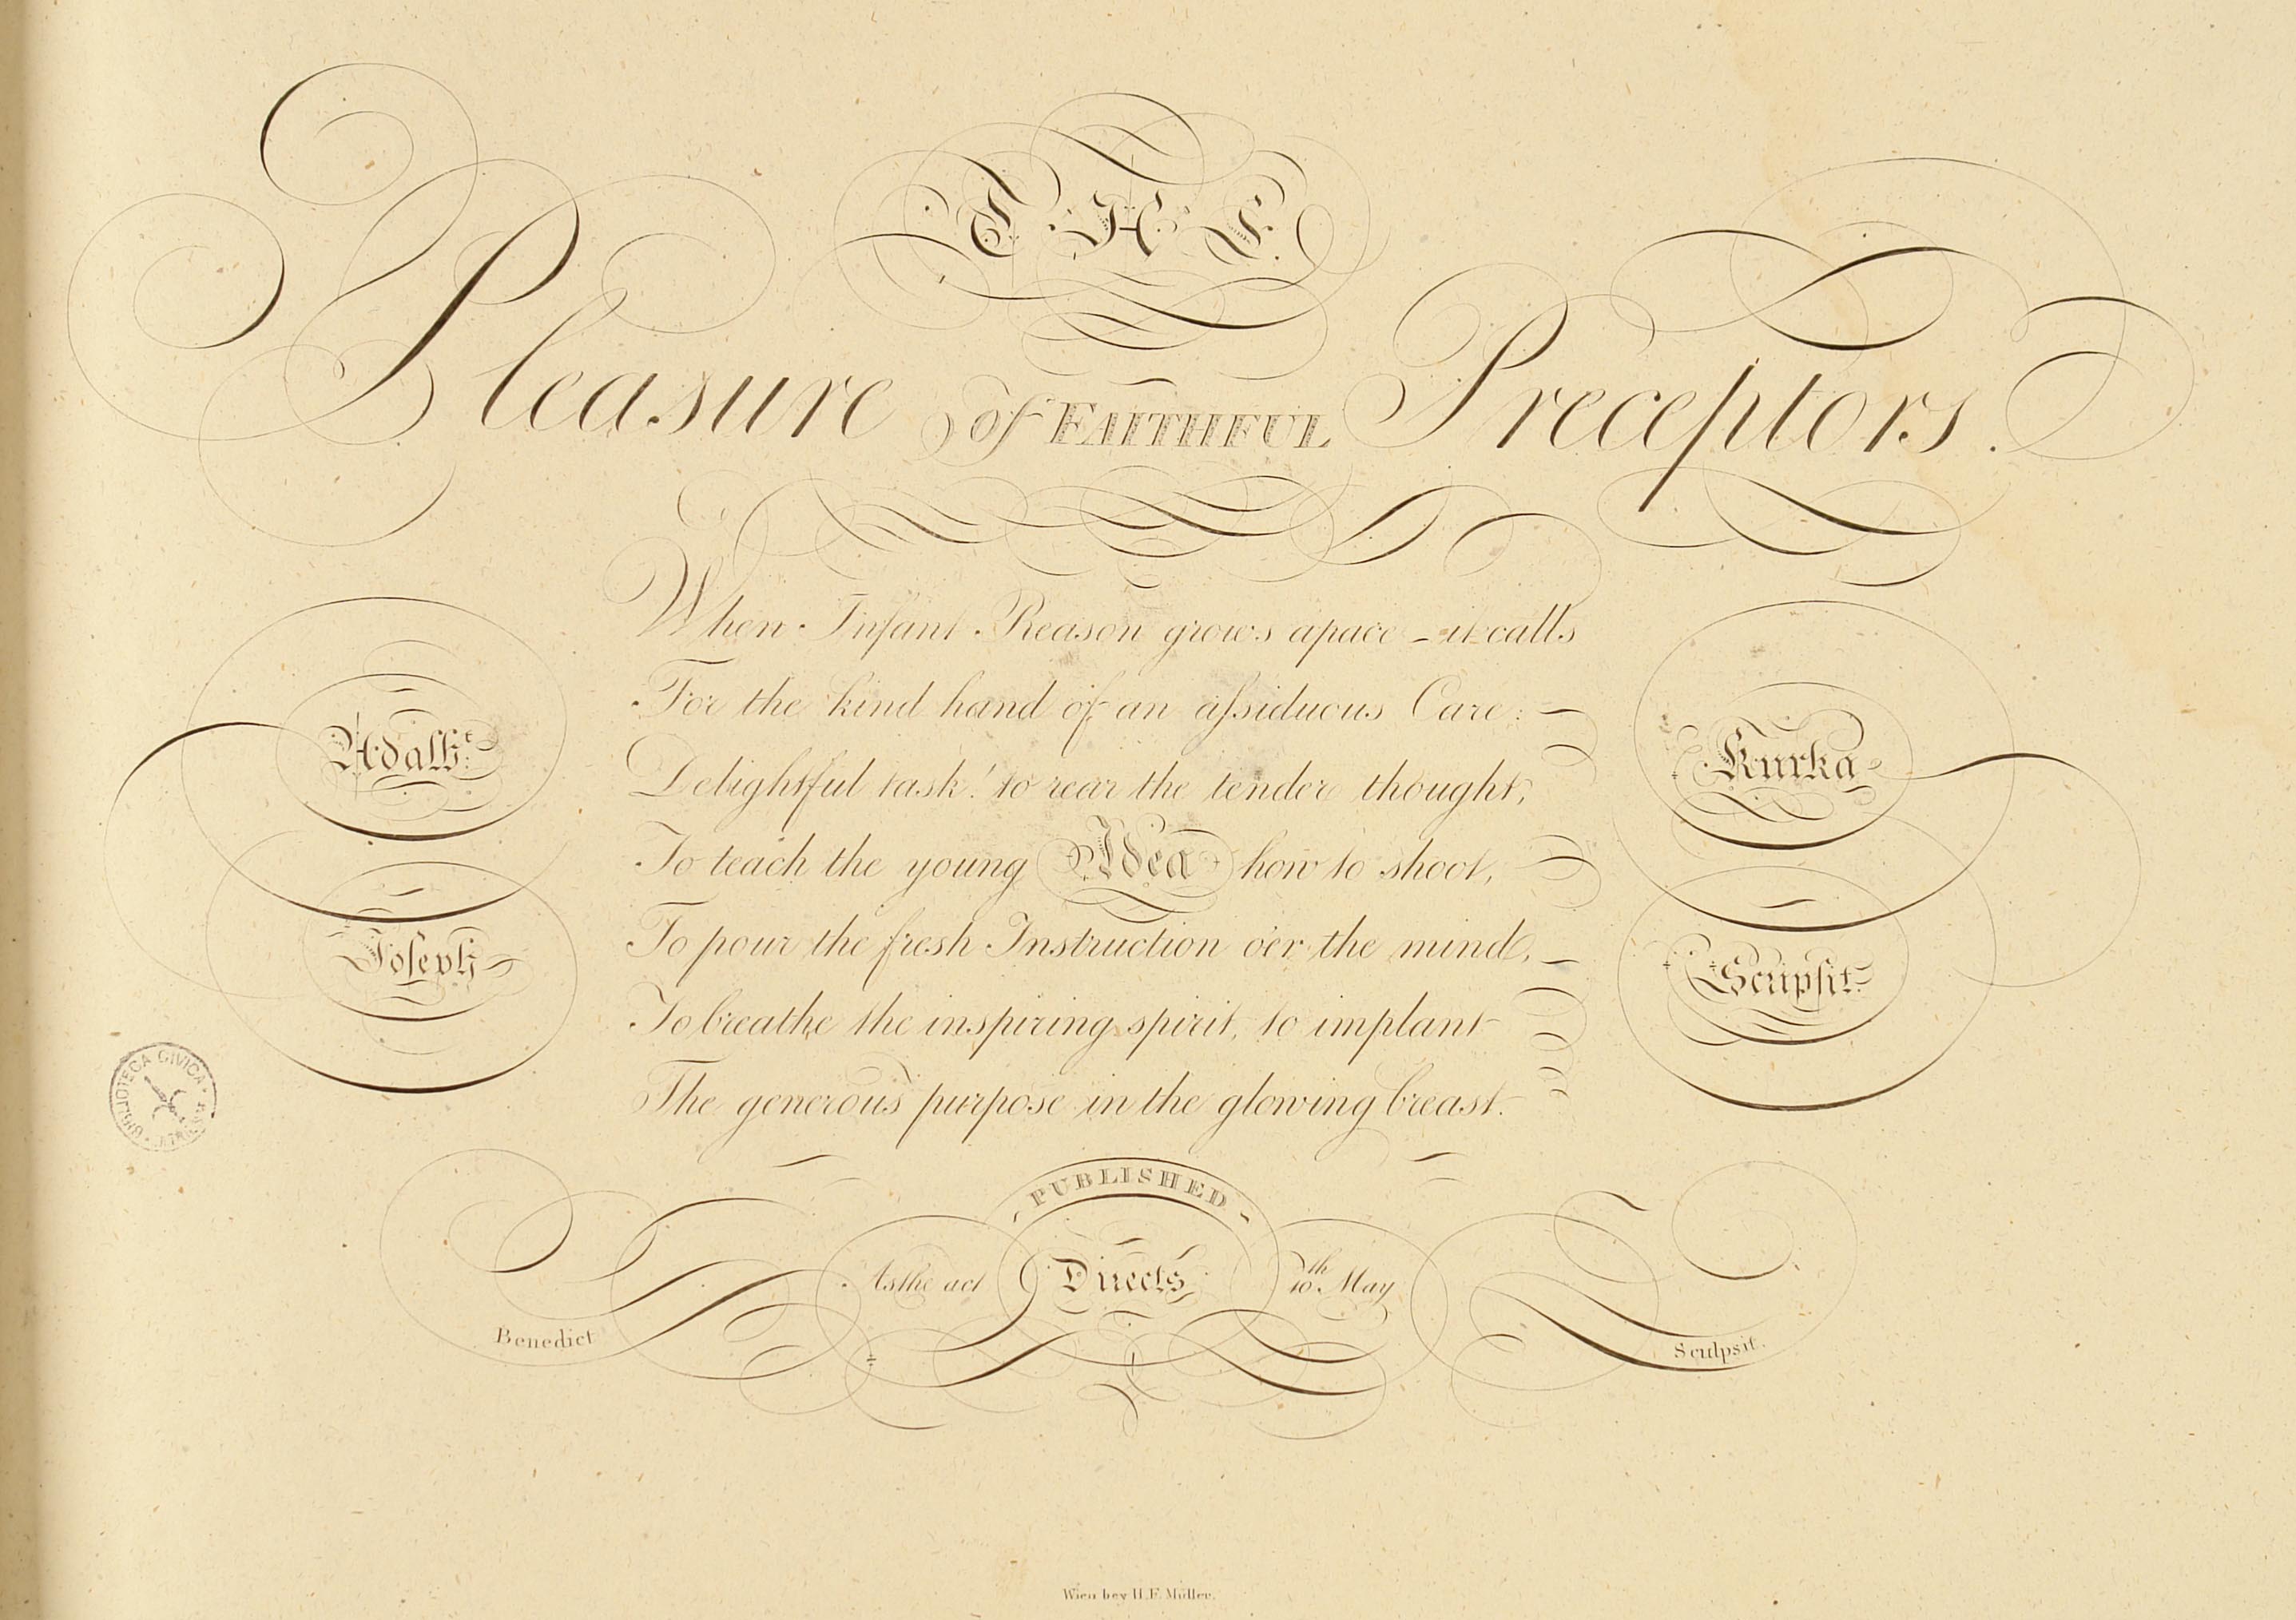 THE
Pleasure of FAITHFUL Preceptors.
When Infant Reason grows apace - it calls
For the kind hand of an aſsiduous Care:
Delightful task! to rear the tender thought,
To teach the young Idea how to shoot,
To pour the fresh Instruction o'er the mind,
To breathe the inspiring spirit, to implant
The generous purpose in the glowing breast.
Adalbt.
Joſeph
Kurka
Scripſit.
BIBLIOTECA CIVICA
PUBLISHED
As the act Directs 10th May
Benedict
Sculpsit.
Wien bey H.F. Müller.